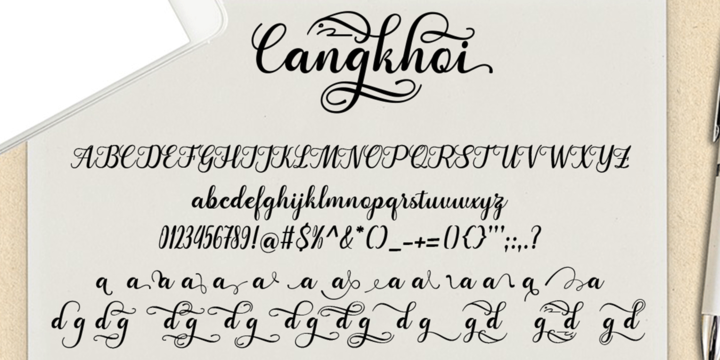 Cangkhoi
ABCDEFGHIJKLMNOPQRSTUVWXYZ
abcdefghijklmnopqrstuvwxyz
0123456789!@#$%^&*()_-+=(){}"';:,.?
a a a a a a a a a a a a a a a
dg dg dg dg dg dg dg gd gd gd